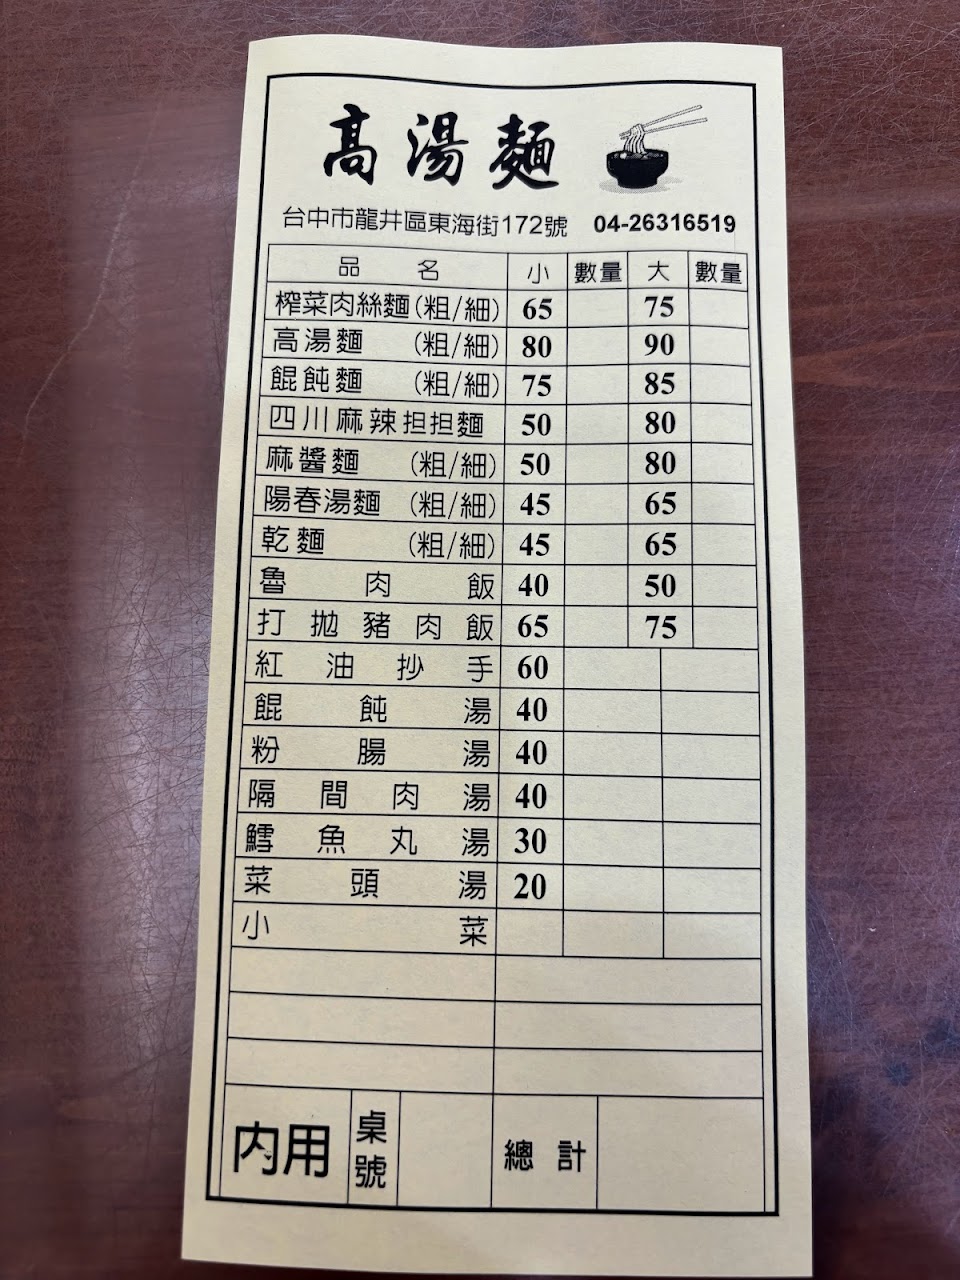 高湯麵
台中市龍井區東海街172號 04-26316519
品名 小 數量 大 數量
榨菜肉絲麵(粗/細) 65 75
高湯麵 (粗/細) 80 90
餛飩麵 (粗/細) 75 85
四川麻辣担担麵 50 80
麻醬麵 (粗/細) 50 80
陽春湯麵 (粗/細) 45 65
乾麵 (粗/細) 45 65
魯肉飯 40 50
打拋豬肉飯 65 75
紅油抄手 60
餛飩湯 40
粉腸湯 40
隔間肉湯 40
鱈魚丸湯 30
菜頭湯 20
小菜
內用 桌號 總計